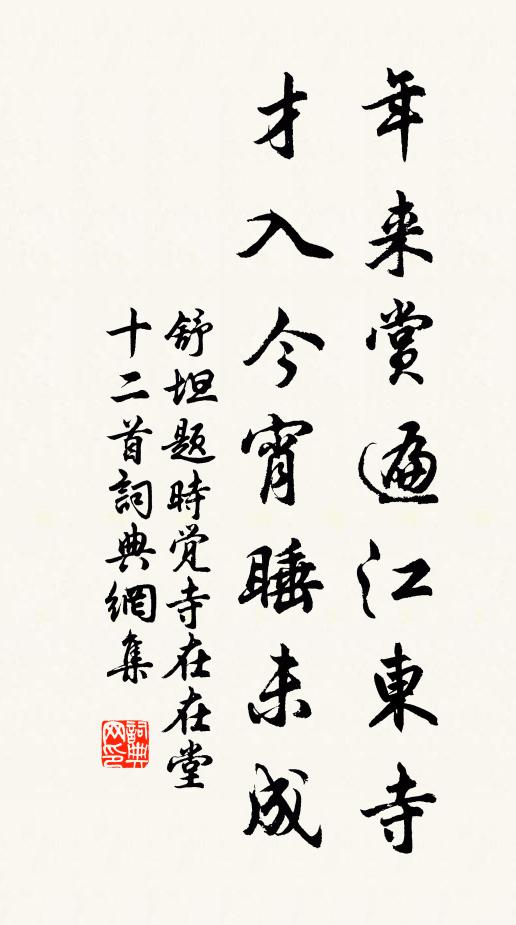 年来赏遍江東寺
才入今宵睡未成
舒坦题時觉寺在在堂
十二首詞典網集
詞典
网印